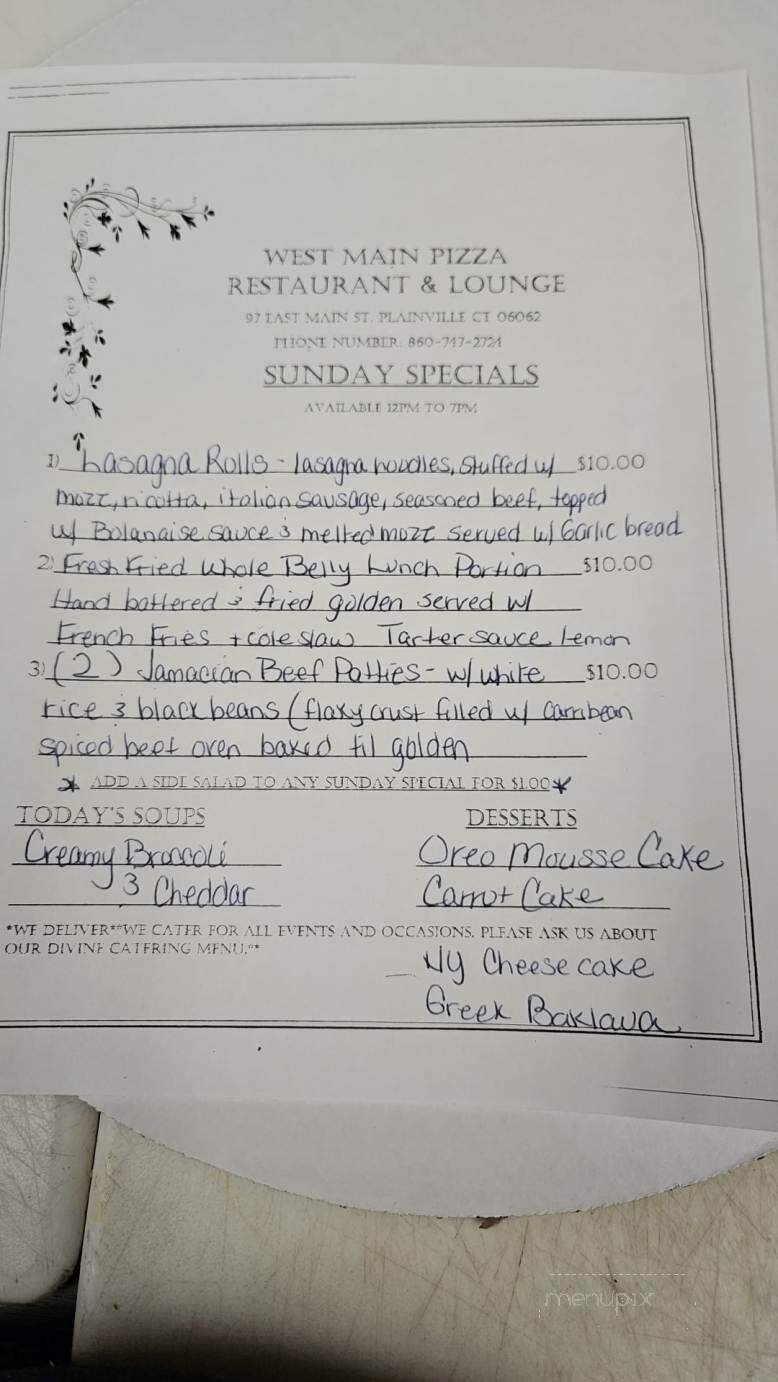 WEST MAIN PIZZA
RESTAURANT & LOUNGE
97 EAST MAIN ST. PLAINVILLE CT 06062
PHONE NUMBER: 860-747-2724
SUNDAY SPECIALS
AVAILABLE 12PM TO 7PM
1) Lasagna Rolls - lasagna noodles, stuffed w/ $10.00
mozz, ricotta, italian sausage, seasoned beef, topped
w/ Bolanaise sauce & melted mozz served w/ Garlic bread
2) Fresh Fried Whole Belly Lunch Portion $10.00
Hand battered & fried golden served w/
French Fries + coleslaw Tarter sauce Lemon
3) (2) Jamacian Beef Patties - w/ white $10.00
rice & black beans (flaky crust filled w/ Carribean
spiced beef oven baked til golden
* ADD A SIDE SALAD TO ANY SUNDAY SPECIAL FOR $1.00 *
TODAY'S SOUPS DESSERTS
Creamy Broccoli Oreo Mousse Cake
& Cheddar Carrot Cake
*WE DELIVER**WE CATER FOR ALL EVENTS AND OCCASIONS. PLEASE ASK US ABOUT
OUR DIVINE CATERING MENU.**
NY Cheese cake
Greek Baklava
menupix